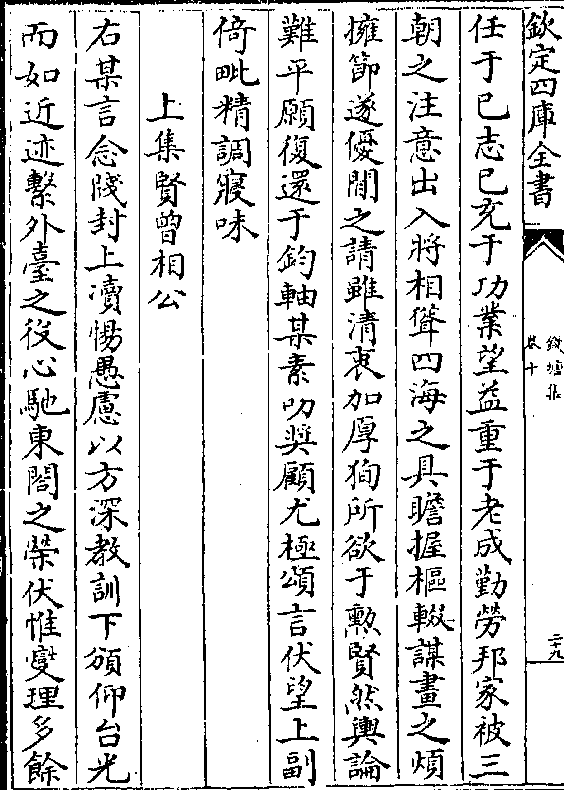 欽定四庫全書
錢塘集
卷十
二十九
任于已志已充于功業望益重于老成勤勞邦家被三
朝之注意出入將相聳四海之具瞻握樞輟謀畫之煩
擁節遂優閒之請雖清衷加厚狥所欲于勲賢然輿論
難平願復還于鈞軸某素叨奨顧尤極頌言伏望上副
倚毗精調寢味
上集賢曾相公
右某言念牋封上瀆惕愚慮以方深教訓下頒仰台光
而如近迹繫外臺之役心馳東閤之榮伏惟變理多餘